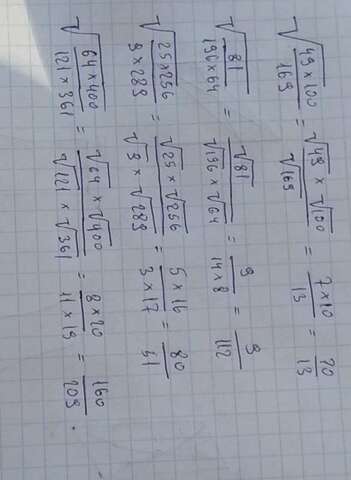 √(49×100 / 169) = √49 × √100 / √169 = 7×10 / 13 = 70 / 13
√(81 / 196×64) = √81 / √196 × √64 = 9 / 14×8 = 9 / 112
√(25×256 / 9×289) = √25 × √256 / √9 × √289 = 5×16 / 3×17 = 80 / 51
√(64×400 / 121×361) = √64 × √400 / √121 × √361 = 8×20 / 11×19 = 160 / 209